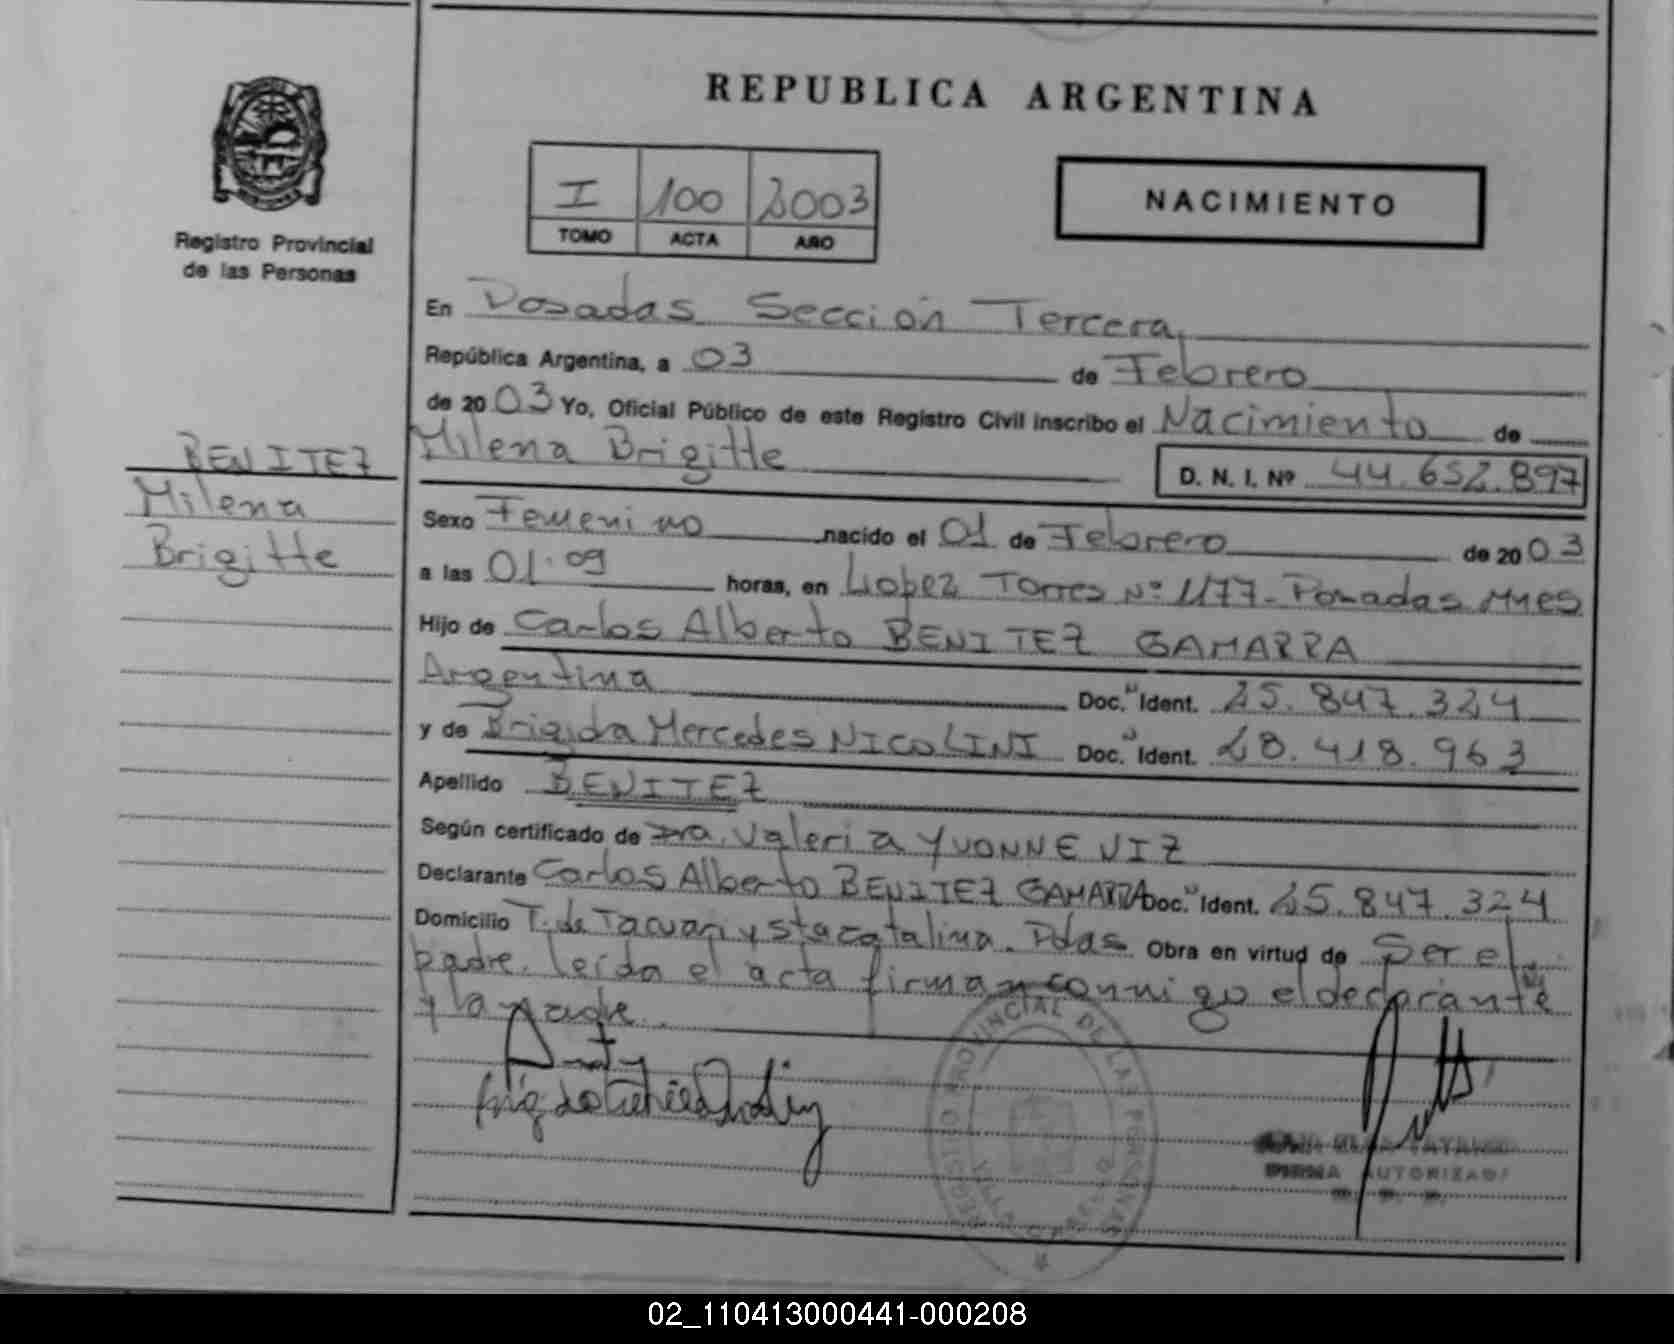 REPUBLICA ARGENTINA
I 100 2003
TOMO ACTA AÑO
NACIMIENTO
Registro Provincial
de las Personas
En Posadas Sección Tercera
República Argentina, a 03 de Febrero
de 20 03 Yo, Oficial Público de este Registro Civil inscribo el Nacimiento de
Milena Brigitte D. N. I. Nº 44.652.897
BENITEZ
Milena
Brigitte
Sexo Femenino nacido el 01 de Febrero de 20 03
a las 01.09 horas, en Lopez Torres Nº 1177 - Posadas Mnes
Hijo de Carlos Alberto BENITEZ GAMARRA
Argentina Doc. Ident. 25.847.324
y de Brigida Mercedes NICOLINI Doc. Ident. 28.418.963
Apellido BENITEZ
Según certificado de Dra. Valeria YVONNE VIZ
Declarante Carlos Alberto BENITEZ GAMARRA Doc. Ident. 25.847.324
Domicilio T. de Tacuari y Sta Catalina. Pdas Obra en virtud de Ser el
padre. leída el acta firman conmigo el declarante
y la madre.
REGISTRO PROVINCIAL DE LAS PERSONAS
FIRMA AUTORIZADA
02_110413000441-000208